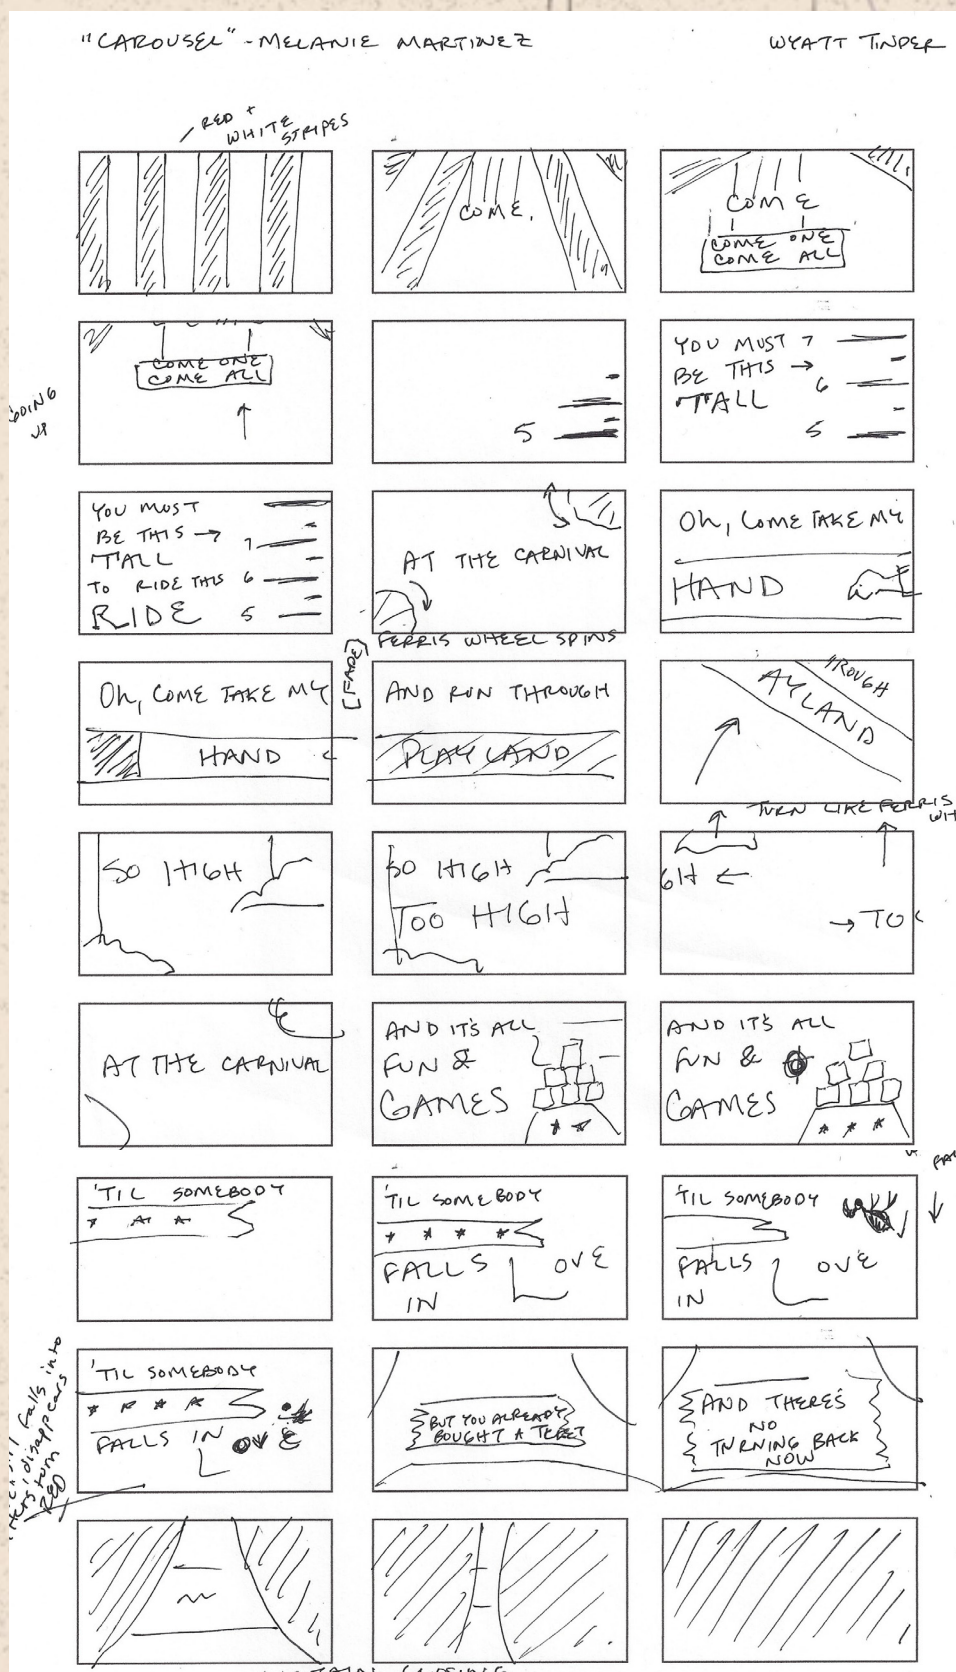 "CAROUSEL" - MELANIE MARTINEZ
WYATT TINDER
RED +
WHITE
STRIPES
COME.
COME
COME ONE
COME ALL
GOING
UP
COME ONE
COME ALL
5
YOU MUST 7
BE THIS → 6
TALL
5
YOU MUST
BE THIS → 7
TALL
TO RIDE THIS 6
RIDE 5
AT THE CARNIVAL
FERRIS WHEEL SPINS
Oh, COME TAKE MY
HAND
Oh, COME TAKE MY
HAND
[FADE]
AND RUN THROUGH
PLAYLAND
ROUGH
AYLAND
TURN LIKE FERRIS
SO HIGH
SO HIGH
TOO HIGH
GH ←
→ TO
AT THE CARNIVAL
AND IT'S ALL
FUN &
GAMES
AND IT'S ALL
FUN &
GAMES
'TIL SOMEBODY
'TIL SOMEBODY
FALLS L OVE
IN
'TIL SOMEBODY
FALLS L OVE
IN
falls into
disappears
turn
RED
'TIL SOMEBODY
FALLS IN
L OVE
BUT YOU ALREADY
BOUGHT A TICKET
AND THERE'S
NO
TURNING BACK
NOW